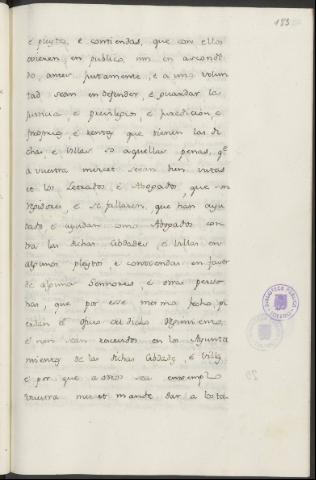 183
e pleytos, e contiendas, que con ellos
ovieren, en publico, nin en ascondi-
do, antes juramente, e a una volun
tad sean en defender, e guardar la
justicia, e previlegios, e juredicion, e
propios, e rentas que tienen las di-
chas, e Villas so aquellas penas, qe
a vuestra mercet sean bien vistas
et los Letrados, e Abogados, que son
Regidores, e se fallaren, que han ayu
dado e ayudan como Abogados con
tra las dichas Cibdades, e Villas en
algunos pleytos, e contiendas en favor
de algunos Sennores, e otras perso
nas, que por ese mesmo fecho, pi
erdan el oficio del dicho Regimiento,
e non sean rescebidos en los Ayunta
mientos de las dichas Cibdades, e Villas
e por que a otros sea enxemplo
vuestra mercet mande dar a los ta
BIBLIOTECA PUBLICA
TOLEDO